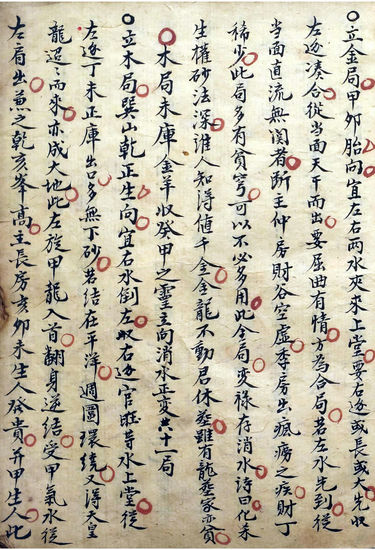 立金局甲卯胎向宜左右两水夾來上堂要右逐或長或大先收
左逐湊合從当面天干而出要屈曲有情方為合局若左水先到從
当面直流無関者断主仲房財谷空虚季房出瘋癆之疾財丁
稀少此局多有貧窮可以不必多用此金局变禄存消水詩曰化禾
生權砂法深誰人知得值千金金龍不動君休塟雖有龍塟家賓
木局未庫金羊收癸甲之靈立向消水正变共十一局
立木局巽山乾正生向宜右水倒左收右逐官旺等水上堂從
左逐丁未正庫出口多無下砂若結在平洋週圍環繞又得天皇
龍迢迢而來亦成大地此左旋甲龍入首翻身逆結受甲氣水從
左肩出兼之乾亥峯高主長房亥卯未生人發貴并甲生人此